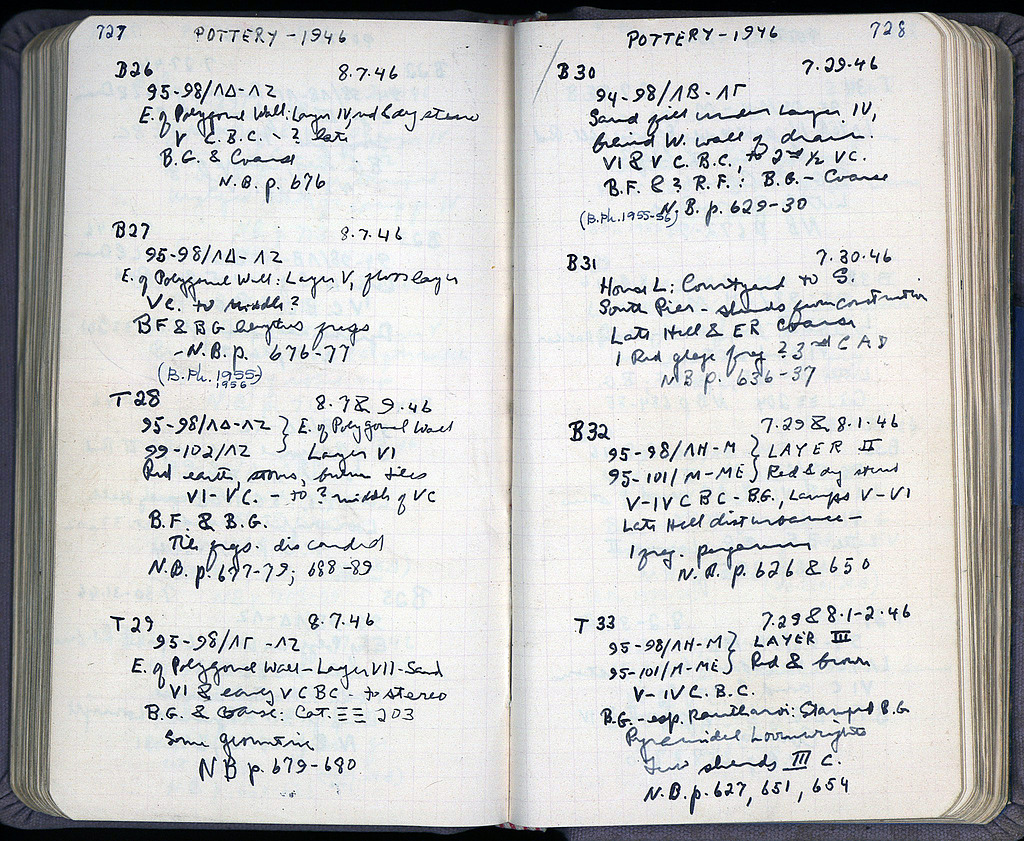 727
POTTERY - 1946
B26 8.7.46
95-98/ΛΔ-ΛΖ
E. of Polygonal Wall: Layer IV, red & clay stereo
V C. B.C. - ? late
B.G. & Coarse
N.B. p. 676
B27 8.7.46
95-98/ΛΔ-ΛΖ
E. of Polygonal Wall: Layer V, floor layer
V C. to middle?
BF & BG frags
- N.B. p. 676-77
(B.Ph. 1955-
1956)
T28 8.7 & 9.46
95-98/ΛΔ-ΛΖ } E. of Polygonal Wall
99-102/ΛΖ } Layer VI
Red earth, stones, broken tiles
VI-VC. - to ? middle of VC
B.F. & B.G.
Tile frags. discarded
N.B. p. 677-79; 688-89
T29 8.7.46
95-98/ΛΓ-ΛΖ
E. of Polygonal Wall - Layer VII - Sand
VI & early V C BC - to stereo
B.G. & Coarse: Cat. ΞΞ 203
Some geometric
NB p. 679-680
POTTERY - 1946
728
B30 7.29.46
94-98/ΛΒ-ΛΓ
Sand fill under Layer IV,
behind W. wall of drain
VI & V C. B.C., to 2nd ½ VC.
B.F. & ? R.F.: B.G. - Coarse
(B.Ph. 1955-56) N.B. p. 629-30
B31 7.30.46
House L: Courtyard to S.
South Pier - sherds from construction
Late Hell & ER coarse
1 Red glaze frag ? 3rd C AD
NB p. 636-37
B32 7.29 & 8.1.46
95-98/ΛΗ-Μ } LAYER II
95-101/Μ-ΜΕ } Red &
V-IV C BC - B.G., Lamps V-VI
Late Hell disturbance -
1 frag.
N.B. p. 626 & 650
T33 7.29 & 8.1-2.46
95-98/ΛΗ-Μ } LAYER III
95-101/Μ-ΜΕ } Red & brown
V-IV C. B.C.
B.G. - esp. Kantharoi: Stamped B.G
Pyramidal Loomweights
Two sherds III C.
N.B. p. 627, 651, 654